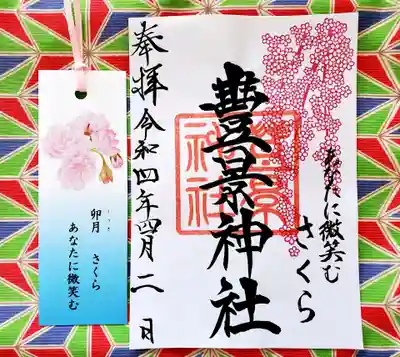 あなたに微笑む
さくら
豊景神社
豊景
神社
奉拝 令和四年四月二日
卯月 さくら
うづき
あなたに微笑む